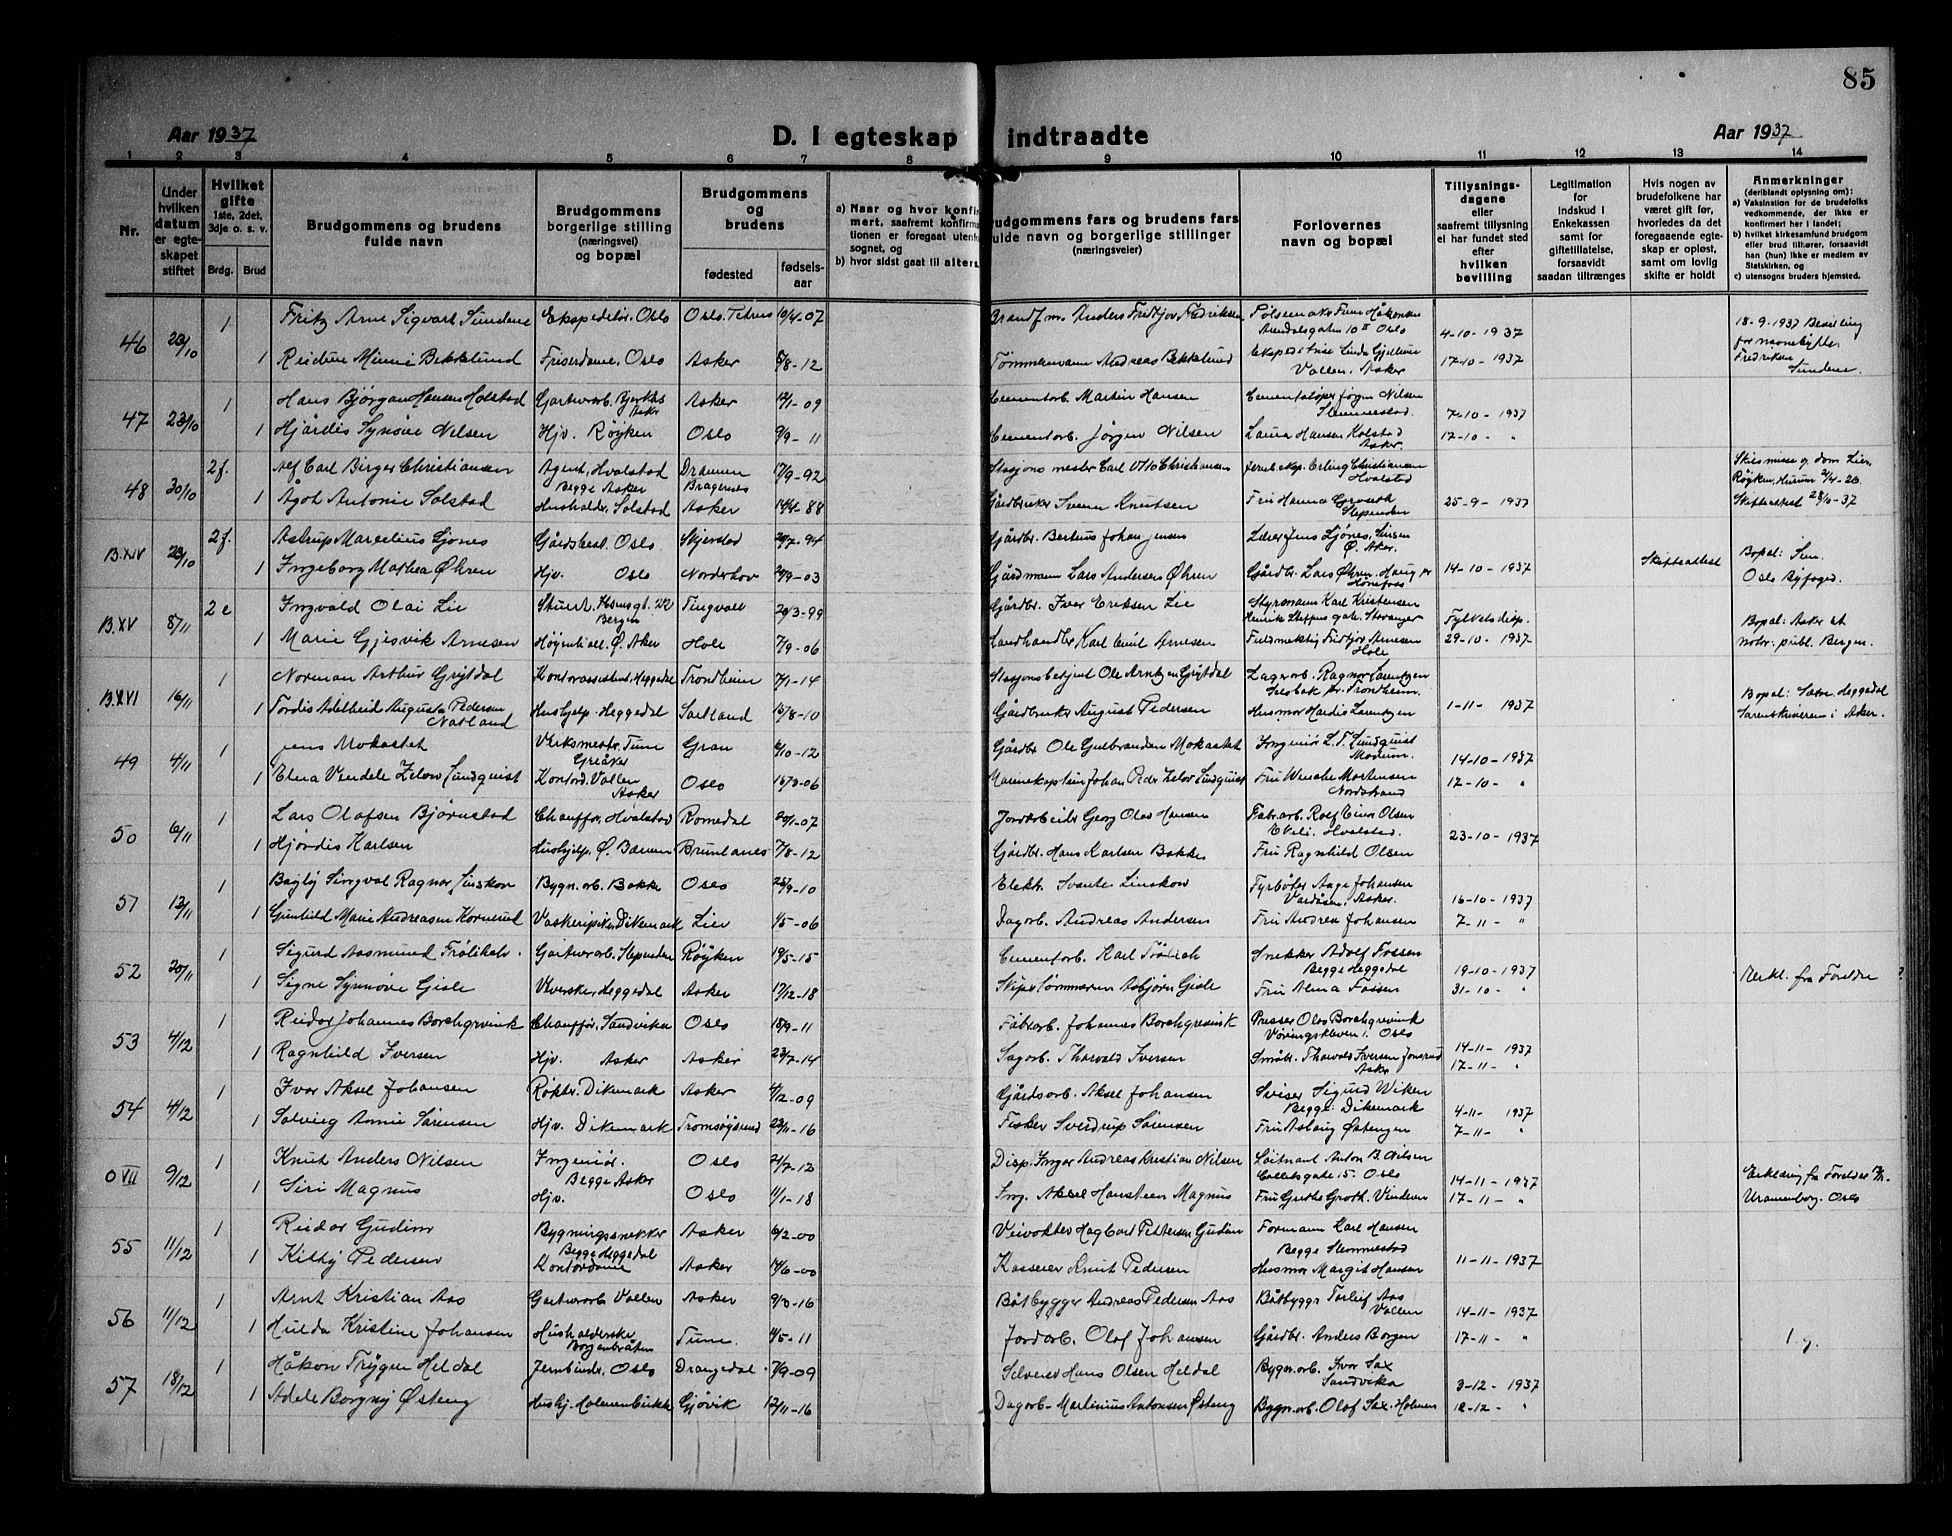 85
Aar 1937
D. I egteskap indtraadte
Aar 1937
1 2 3 4 5 6 7 8 9 10 11 12 13 14
Nr.
Under hvilken datum er egteskapet stiftet
Hvilket gifte 1ste, 2det, 3dje o. s. v.
Brdg. Brud
Brudgommens og brudens fulde navn
Brudgommens borgerlige stilling (næringsvei) og bopæl
Brudgommens og brudens
fødested fødselsaar
a) Naar og hvor konfir
mert, saafremt konfirma
tionen er foregaat utenfo
sognet, og
b) hvor sidst gaat til alters.
udgommens fars og brudens fars
fulde navn og borgerlige stillinger
(næringsveier)
Forlovernes navn og bopæl
Tillysnings-dagene eller saafremt tillysning ei har fundet sted efter hvilken bevilling
Legitimation for indskud i Enkekassen samt for giftetillatelse, forsaavidt saadan tiltrænges
Hvis nogen av brudefolkene har været gift før, hvorledes da det foregaaende egteskap er opløst, samt om lovlig skifte er holdt
Anmerkninger (deriblandt oplysning om): a) Vaksination for de brudefolks vedkommende, der ikke er konfirmert her i landet; b) hvilket kirkesamfund brudgom eller brud tilhører, forsaavidt han (hun) ikke er medlem av Statskirken, og c) utensogns bruders hjemsted.
46 23/10 1 Fritz Arne Sigvart Sundene Ekspeditør, Oslo Oslo. Petrus 10/4-07 Brandfm. Anders Fridtjov Fredriksen Arendalsgaten 10 II Oslo 4-10-1937 18-9-1937 Bevilling for navnebytte Fredriksen Sundene.
1 Reidun Minni Bekklund Friserdame, Oslo Asker 5/8-12 Tømmermann Andreas Bekklund Ekspeditrise Linda Gjellum Vollen, Asker 17-10-1937
47 23/10 1 Hans Bjørgan Hansen Holstad Gartnerarb. Bjerkås Asker Asker 12/1-09 Cementarb. Martin Hansen Cementstøper Jørgen Nilsen Slemmestad. 7-10-1937
1 Hjørdis Synøve Nilsen Hjv. Røyken Oslo 9/9-11 Cementarb. Jørgen Nilsen Laura Hansen Holstad Asker. 17-10- "
48 30/10 2 f. Alf Carl Birger Christiansen Agent, Hvalstad Begge Asker Drammen Bragernes 17/9-92 Stasjonsmester Carl Otto Christiansen Erling Christiansen Hvalstad Skilsmisse g. dom Lier, Røyken, Hurum 2/4-26.
1 Ågot Antonie Solstad Husholder, Solstad Asker 14/4-88 Gårdbruker Svenn Knutsen Fru Hanna Slependen 25-9-1937 Skifteattest
B.XIV 23/10 2 f. Astrup Marcelius Ljønes Gårdsbest. Oslo Skjerstad 20/7-94 Gårdbr. Bertius Johan Jensen Lærer Jens Ljønes, Sinsen Ø. Aker.
1 Ingeborg Mathea Øhren Hjv. Oslo Norderhov 20/9-03 Gårdmann Lars Andersen Øhren Gårdbr. Lars Øhren, Haug pr Hønefoss 14-10-1937 Skifteattest Bopal: Sem. Oslo Byfoged.
B.XV 8/11 2 e Ingvald Olai Lie Bergen Tingvoll 20/3-99 Gårdbr. Iver Eriksen Lie Styrmann Karl Kristensen Henrik Steffens gate, Stavanger Fylkesdisp.
1 Marie Gjesvik Arnesen Ø. Aker Hole 7/9-06 Landhandler Karl Emil Arnesen Fuldmektig Fridtjov Arnesen Hole 29-10-1937 Bopal: Asker at notar. publ. Bergen.
B.XVI 16/11 1 Norman Arthur Grytdal Kontorassistent, Heggedal Trondheim 7/1-14 Stasjonsbetjent Ole Arntzen Grytdal Lagerarb. Ragnar Lorentzen Selsbak pr. Trondheim.
1 Tordis Adelheid Augusta Pedersen Natland Hushjelp. Heggedal Sortland 15/8-10 Gårdbruker August Pedersen Husmor Hardis Lorentzen 1-11-1937 Bopal: Heggedal Sorenskriveren i Asker.
49 4/11 1 Jens Mokastet Verksmester, Tune Greåker Gran 6/10-12 Gårdbr Ole Gulbrandsen Mokastet Ingeniør L. F. Lundquist Modum. 14-10-1937
1 Elna Vendele Zelow Lundquist Kontord. Vollen Asker Oslo 15/3-06 Marinekaptein Johan Peder Zelow Lundquist Fru Wenche Mortensen Nordstrand 17-10- "
50 6/11 1 Lars Olafsen Bjørnstad Chauffør, Hvalstad Romedal 20/1-07 Jordarbeider Georg Olav Hansen Fabr.arb. Rolf Einar Olsen Ekeli, Hvalstad. 23-10-1937
1 Hjørdis Karlsen Hushjelp, Ø. Bærum Brunlanes 7/8-12 Gårdbr. Hans Karlsen Bakke Fru Ragnhild Olsen
51 13/11 1 Ragnar Linskow Bygn.arb. Bakke Oslo 25/9-10 Elektr. Svante Linskow Fyrbøter Aage Johansen Vardåsen, Asker. 16-10-1937
1 Gunhild Marie Andreasen Kornerud Vaskeripike, Dikemark Lier 1/5-06 Dagarb. Andreas Andersen Fru Andrea Johansen 7-11- "
52 20/11 1 Sigurd Aasmund Frölich Gartnerarb. Slependen Røyken 19/5-15 Cementarb. Karl Frölich Snekker Adolf Fossen Begge Heggedal 19-10-1937
1 Signe Synnøve Gisle Veverske, Heggedal Asker 17/12-18 Skipstømmerm. Asbjørn Gisle Fru Alma Fossen 31-10- " Erkl. fra Foreldre
53 4/12 1 Reidar Johannes Borchgrevink Chauffør, Sandvika Oslo 15/9-11 Fabr.arb. Johannes Borchgrevink Presser Olav Borchgrevink Oslo 14-11-1937
1 Ragnhild Iversen Hjv. Asker Asker 23/7-14 Sagarb. Thorvald Iversen Småbr. Thorvald Iversen Jonsrud Asker 17-11- "
54 4/12 1 Ivar Aksel Johansen Røkter. Dikemark Asker 4/12-09 Gårdsarb. Aksel Johansen Sveiser Sigurd Wiken Begge: Dikemark 4-11-1937
1 Solveig Annie Sørensen Hjv. Dikemark Tromsøysund 22/11-16 Fisker Sverdrup Sørensen Fru Aslaug Østengen 7-11- "
O VII 9/12 1 Knut Anders Nilsen Ingeniør. Begge Asker Oslo 21/7-12 Disp. Ingar Andreas Kristian Nilsen Løitnant Anton B. Nilsen Colletsgade 15. Oslo 14-11-1937 Erklæring fra Foreldre
1 Siri Magnus Hjv. Oslo 11/1-18 Ing. Aksel Hansteen Magnus Fru Grethe Groth. Vinderen 17-11- " Uranienborg. Oslo
55 11/12 1 Reidar Gudim Bygningssnekker Begge Heggedal Asker 6/2-00 Veivokter Hagbart Pettersen Gudim Formann Karl Hansen Begge Slemmestad
1 Kitty Pedersen Kontordame Asker 14/6-00 Kasserer Knut Pedersen Husmor Margit Hansen 11-11-1937
56 11/12 1 Arnt Kristian Aas Gartnerarb. Vollen Asker 9/3-16 Båtbygger Andreas Pedersen Aas Båtbyggr Torleif Aas Vollen 14-11-1937
1 Hulda Kristine Johansen Husholderske Borgenbråten Tune. 14/5-11 Jordarb. Olaf Johansen Gårdbr. Anders Borgen 17-11- " 1. g.
57 18/12 1 Håkon Trygve Heldal Jernbinder, Oslo Drangedal 7/9-09 Hans Olsen Heldal Bygn.arb. Ivar Sax Sandvika 3-12-1937
1 Adele Borgny Østeng Gjøvik 12/11-16 Dagarb. Martinius Antonsen Østeng Bygn.arb. Olaf Sax. Holmen 12-12- "